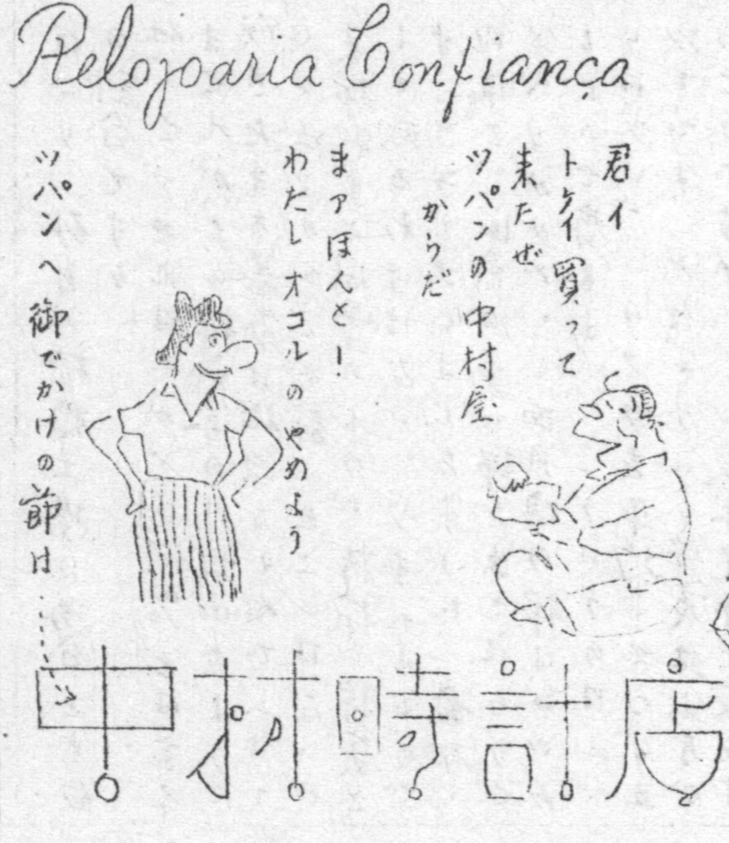 Relojoaria Confiança
君イ
トケイ買って
来たぜ
ツパンの中村屋
からだ
まァほんと!
わたしオコルのやめよう
ツパンへ御でかけの節は……
中村時計店